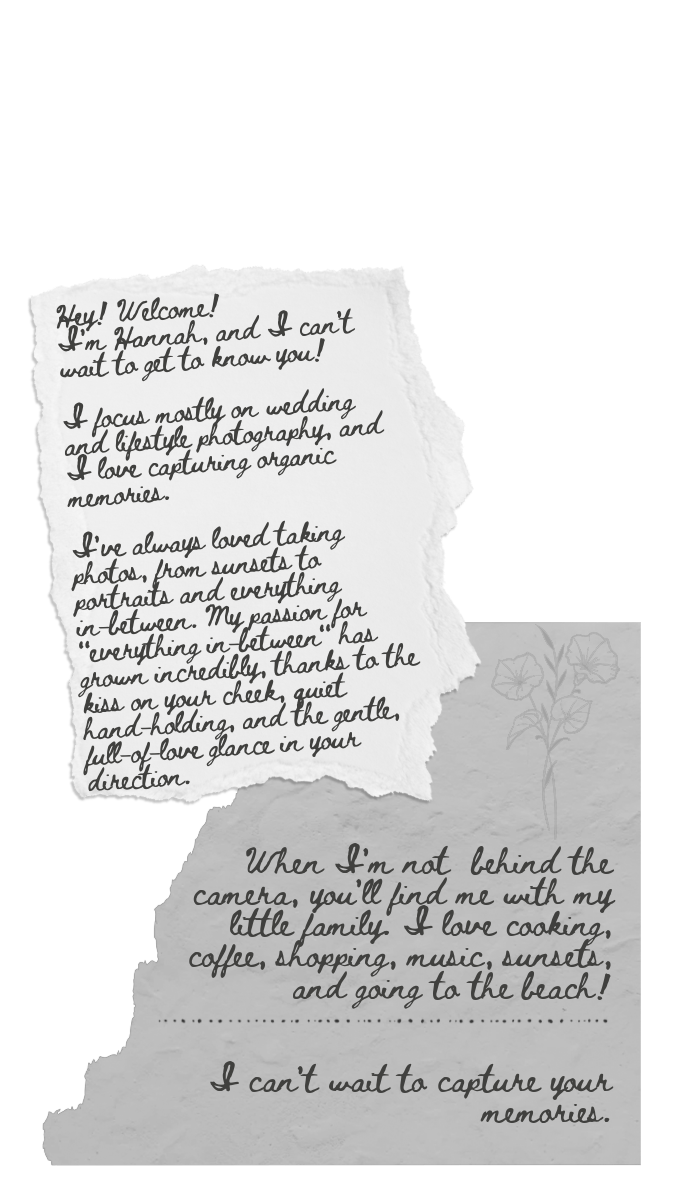 Hey! Welcome!
I'm Hannah, and I can't
wait to get to know you!
I focus mostly on wedding
and lifestyle photography, and
I love capturing organic
memories.
I've always loved taking
photos, from sunsets to
portraits and everything
in-between. My passion for
"everything in-between" has
grown incredibly, thanks to the
kiss on your cheek, quiet
hand-holding, and the gentle,
full-of-love glance in your
direction.
When I'm not behind the
camera, you'll find me with my
little family. I love cooking,
coffee, shopping, music, sunsets,
and going to the beach!
I can't wait to capture your
memories.